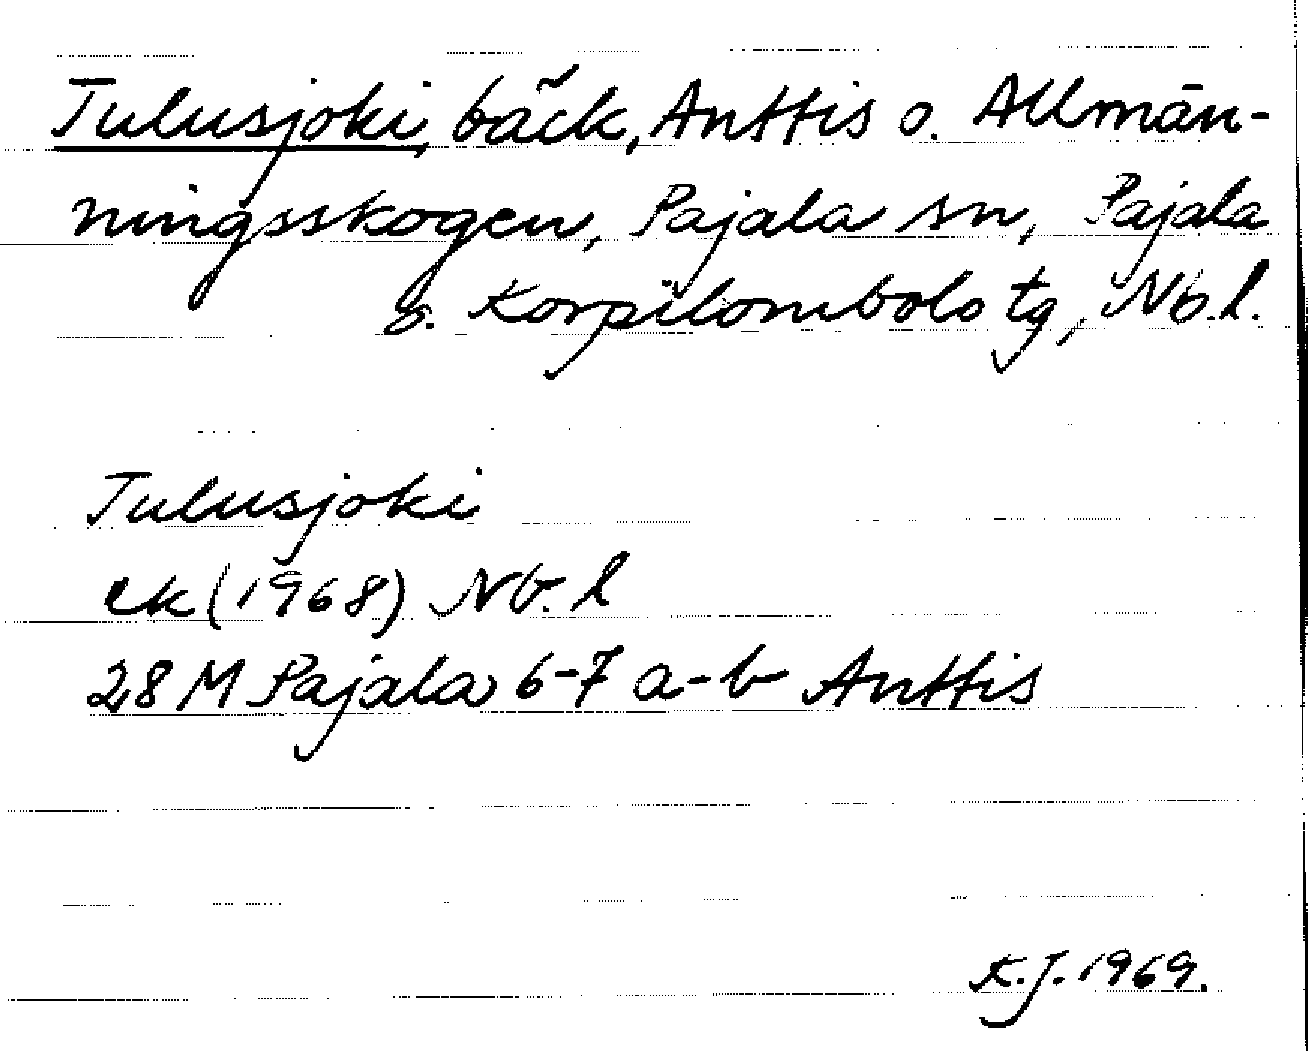 Tulusjoki, bäck, Anttis o. Allmän-
ningsskogen, Pajala sn, Pajala
o. Korpilombolo tg, Nb.l.
Tulusjoki
ek (1968) Nb. l
28 M Pajala 6-7 a-b Anttis
K.J. 1969.